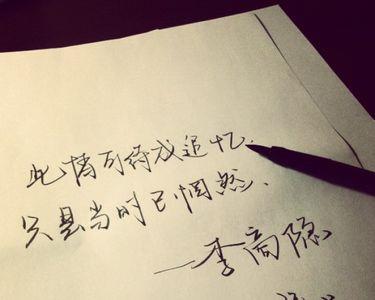 此情可待成追忆.
只是当时已惘然.
—李商隐